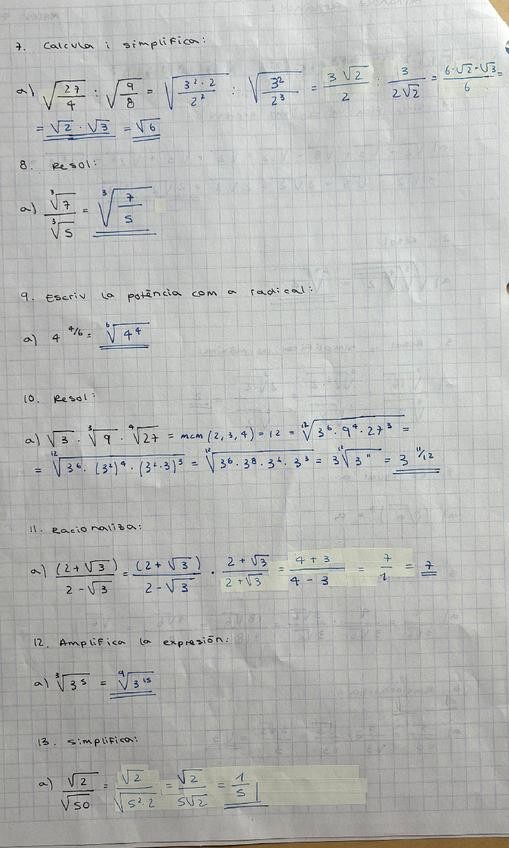 7. Calcula i simplifica:
a) √(27/4) : √(9/8) = √(3²·2/2²) : √(3²/2³) = 3√2/2 · 3/2√2 = 6·√2·√3/6 =
= √2 · √3 = √6
8. Resol:
a) ³√7/³√5 = ³√(7/5)
9. Escriv la potència com a radical:
a) 4^(4/6) = ⁶√(4⁴)
10. Resol:
a) √3 · ³√9 · ⁴√27 = mcm (2,3,4) = 12 = ¹²√(3⁶ · 9⁴ · 27³) =
= ¹²√(3⁶ · (3²)⁴ · (3²·3)³) = ¹²√(3⁶ · 3⁸ · 3⁶ · 3³) = 3 ¹²√(3¹¹) = 3^(11/12)
11. Racionaliza:
a) (2+√3)/2-√3 = (2+√3)/2-√3 · 2+√3/2+√3 = 4+3/4-3 = 7/1 = 7
12. Amplifica la expresión:
a) ³√(3⁵) = ⁹√(3¹⁵)
13. Simplifica:
a) √2/√50 = √2/√(5²·2) = √2/5√2 = 1/5